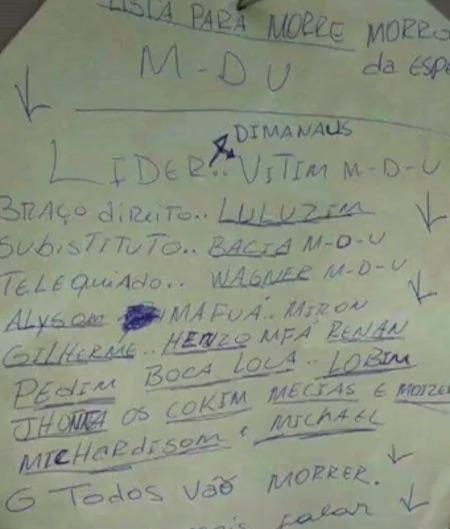 LISTA PARA MORRE MORRO
M-D-U da ESPE
DIMANAUS
LIDER.. VITIM M-D-U
BRAÇO direito.. LULUZIM
SUBISTITUTO.. BACIA M-D-U
TELEQUIADO.. WAGNER M-D-U
ALYSON MAFUÁ.. MIRON
GILHERME.. HENZO MFÁ RENAN
PEDIM BOCA LOCA.. LOBIM
OS COKIM MECIAS E
MICHARDISOM E MICHAEL
G TODOS VÃO MORRER.
falar